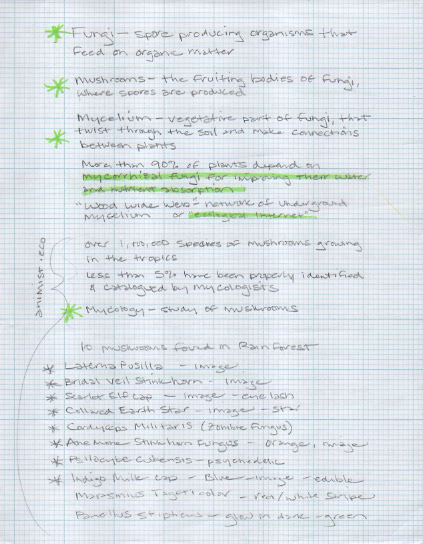 * Fungi - spore producing organisms that
feed on organic matter
* Mushrooms - the fruiting bodies of Fungi,
where spores are produced
Mycelium - vegetative part of fungi, that
* twist through the soil and make connections
between plants
More than 90% of plants depend on
mycorrhizal fungi for improving their water
and nutrient absorption
"Wood wide web" - network of underground
Mycelium or "ecological Internet"
animist.eco
over species of mushrooms growing
in the tropics
Less than 5% have been properly identified
& catalogued by mycologists
* Mycology - study of mushrooms
10 mushrooms found in Rainforest
* Laterna Pusilla - image
* Bridal Veil Stinkhorn - image
* Scarlet Elf Cap - image - eyelash
* Collared Earth Star - image - star
* Cordyceps Militaris (Zombie Fungus)
* Anemone Stinkhorn Fungus - orange, image
* Psilocybe Cubensis - psychedelic
* Indigo Milk cap - Blue - image - edible
Marasmius - red/white stripe
Panellus Stipticus - glow in dark - green